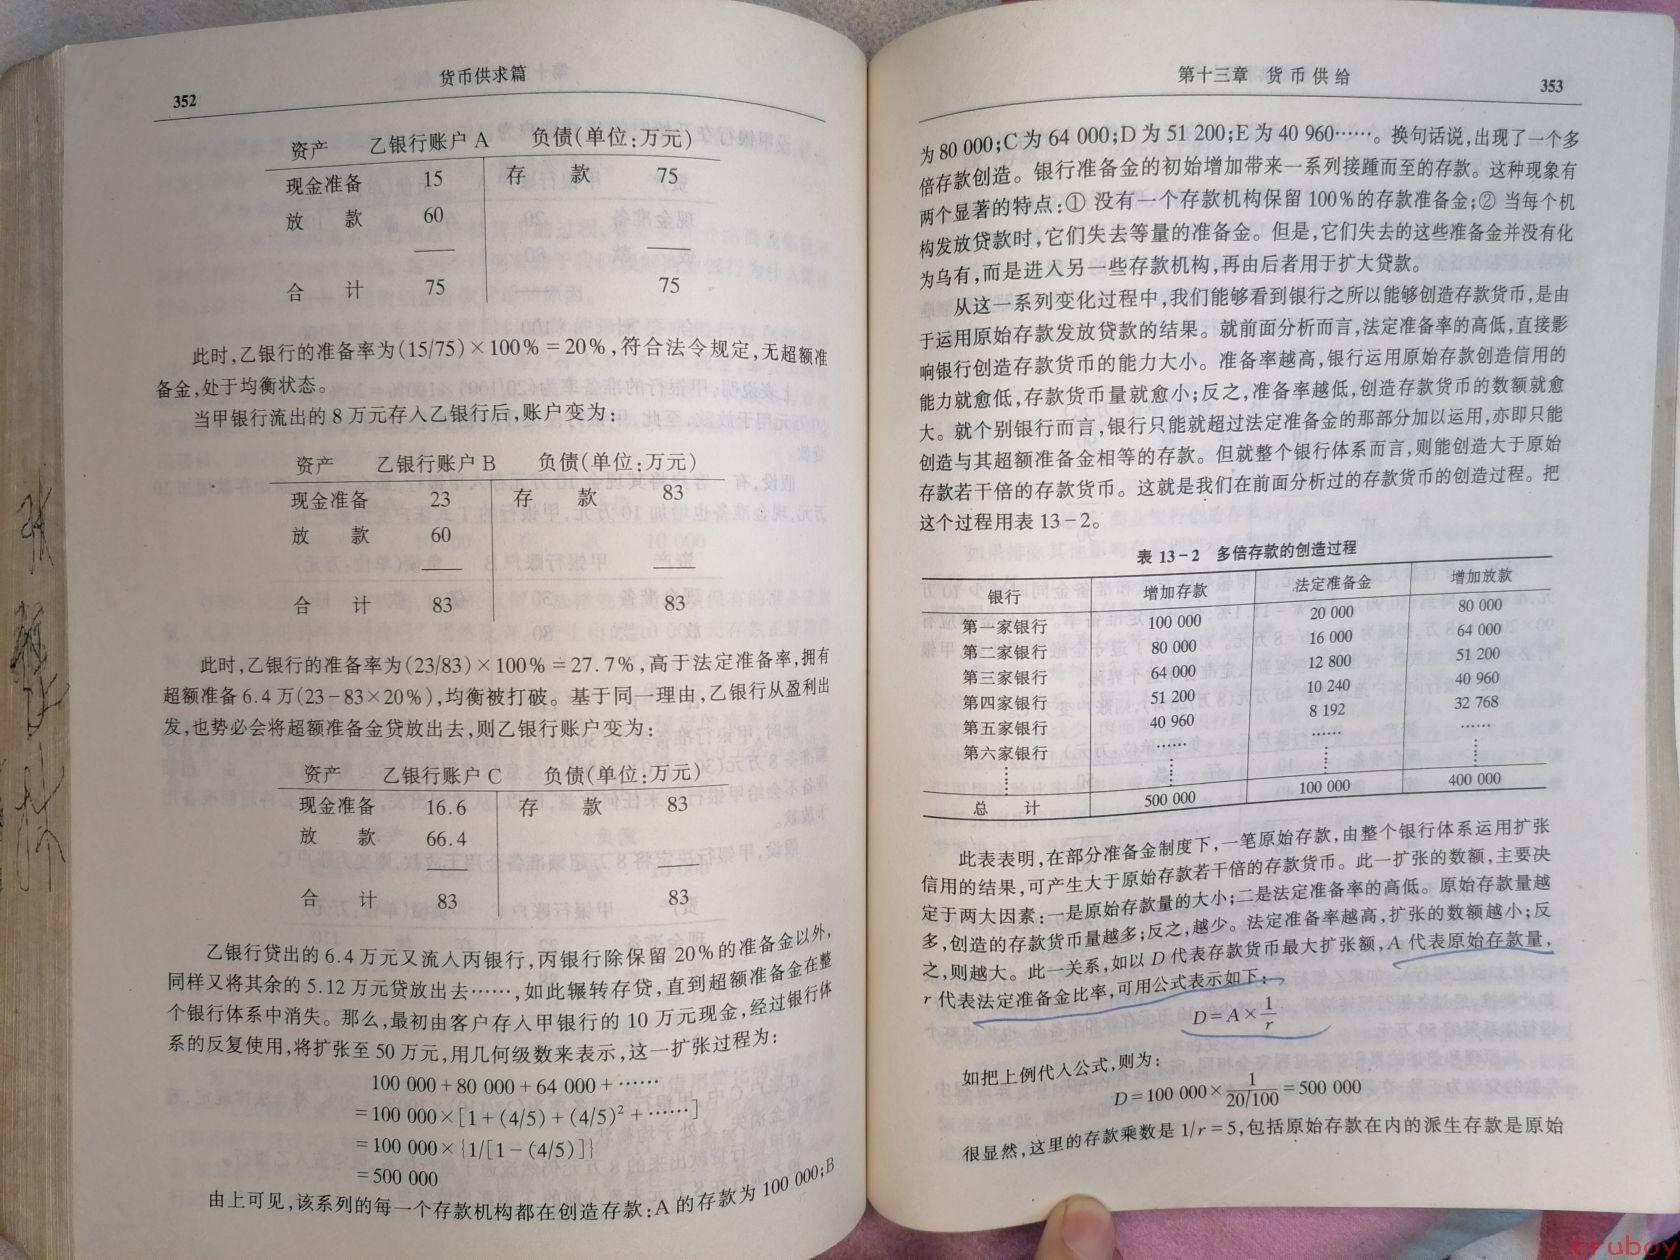 352
货币供求篇
资产 乙银行账户 A 负债(单位:万元)
现金准备 15 存 款 75
放 款 60
合 计 75 75
此时,乙银行的准备率为(15/75)×100%=20%,符合法令规定,无超额准
备金,处于均衡状态。
当甲银行流出的 8 万元存入乙银行后,账户变为:
资产 乙银行账户 B 负债(单位:万元)
现金准备 23 存 款 83
放 款 60
合 计 83 83
此时,乙银行的准备率为(23/83)×100%=27.7%,高于法定准备率,拥有
超额准备 6.4 万(23-83×20%),均衡被打破。基于同一理由,乙银行从盈利出
发,也势必会将超额准备金贷放出去,则乙银行账户变为:
资产 乙银行账户 C 负债(单位:万元)
现金准备 16.6 存 款 83
放 款 66.4
合 计 83 83
乙银行贷出的 6.4 万元又流入丙银行,丙银行除保留 20%的准备金以外,
同样又将其余的 5.12 万元贷放出去……,如此辗转存贷,直到超额准备金在整
个银行体系中消失。那么,最初由客户存入甲银行的 10 万元现金,经过银行体
系的反复使用,将扩张至 50 万元,用几何级数来表示,这一扩张过程为:
100 000+80 000+64 000+……
=100 000×[1+(4/5)+(4/5)²+……]
=100 000×{1/[1-(4/5)]}
=500 000
由上可见,该系列的每一个存款机构都在创造存款:A 的存款为 100 000;B
第十三章 货币供给
353
为 80 000;C 为 64 000;D 为 51 200;E 为 40 960……。换句话说,出现了一个多
倍存款创造。银行准备金的初始增加带来一系列接踵而至的存款。这种现象有
两个显著的特点:① 没有一个存款机构保留 100%的存款准备金;② 当每个机
构发放贷款时,它们失去等量的准备金。但是,它们失去的这些准备金并没有化
为乌有,而是进入另一些存款机构,再由后者用于扩大贷款。
从这一系列变化过程中,我们能够看到银行之所以能够创造存款货币,是由
于运用原始存款发放贷款的结果。就前面分析而言,法定准备率的高低,直接影
响银行创造存款货币的能力大小。准备率越高,银行运用原始存款创造信用的
能力就愈低,存款货币量就愈小;反之,准备率越低,创造存款货币的数额就愈
大。就个别银行而言,银行只能就超过法定准备金的那部分加以运用,亦即只能
创造与其超额准备金相等的存款。但就整个银行体系而言,则能创造大于原始
存款若干倍的存款货币。这就是我们在前面分析过的存款货币的创造过程。把
这个过程用表 13-2。
表 13-2 多倍存款的创造过程
银行 增加存款 法定准备金 增加放款
第一家银行 100 000 20 000 80 000
第二家银行 80 000 16 000 64 000
第三家银行 64 000 12 800 51 200
第四家银行 51 200 10 240 40 960
第五家银行 40 960 8 192 32 768
第六家银行 …… …… ……
总 计 500 000 100 000 400 000
此表表明,在部分准备金制度下,一笔原始存款,由整个银行体系运用扩张
信用的结果,可产生大于原始存款若干倍的存款货币。此一扩张的数额,主要决
定于两大因素:一是原始存款量的大小;二是法定准备率的高低。原始存款量越
多,创造的存款货币量越多;反之,越少。法定准备率越高,扩张的数额越小;反
之,则越大。此一关系,如以 D 代表存款货币最大扩张额,A 代表原始存款量,
r 代表法定准备金比率,可用公式表示如下:
D=A×1/r
如把上例代入公式,则为:
D=100 000×1/(20/100)=500 000
很显然,这里的存款乘数是 1/r=5,包括原始存款在内的派生存款是原始
cruboy